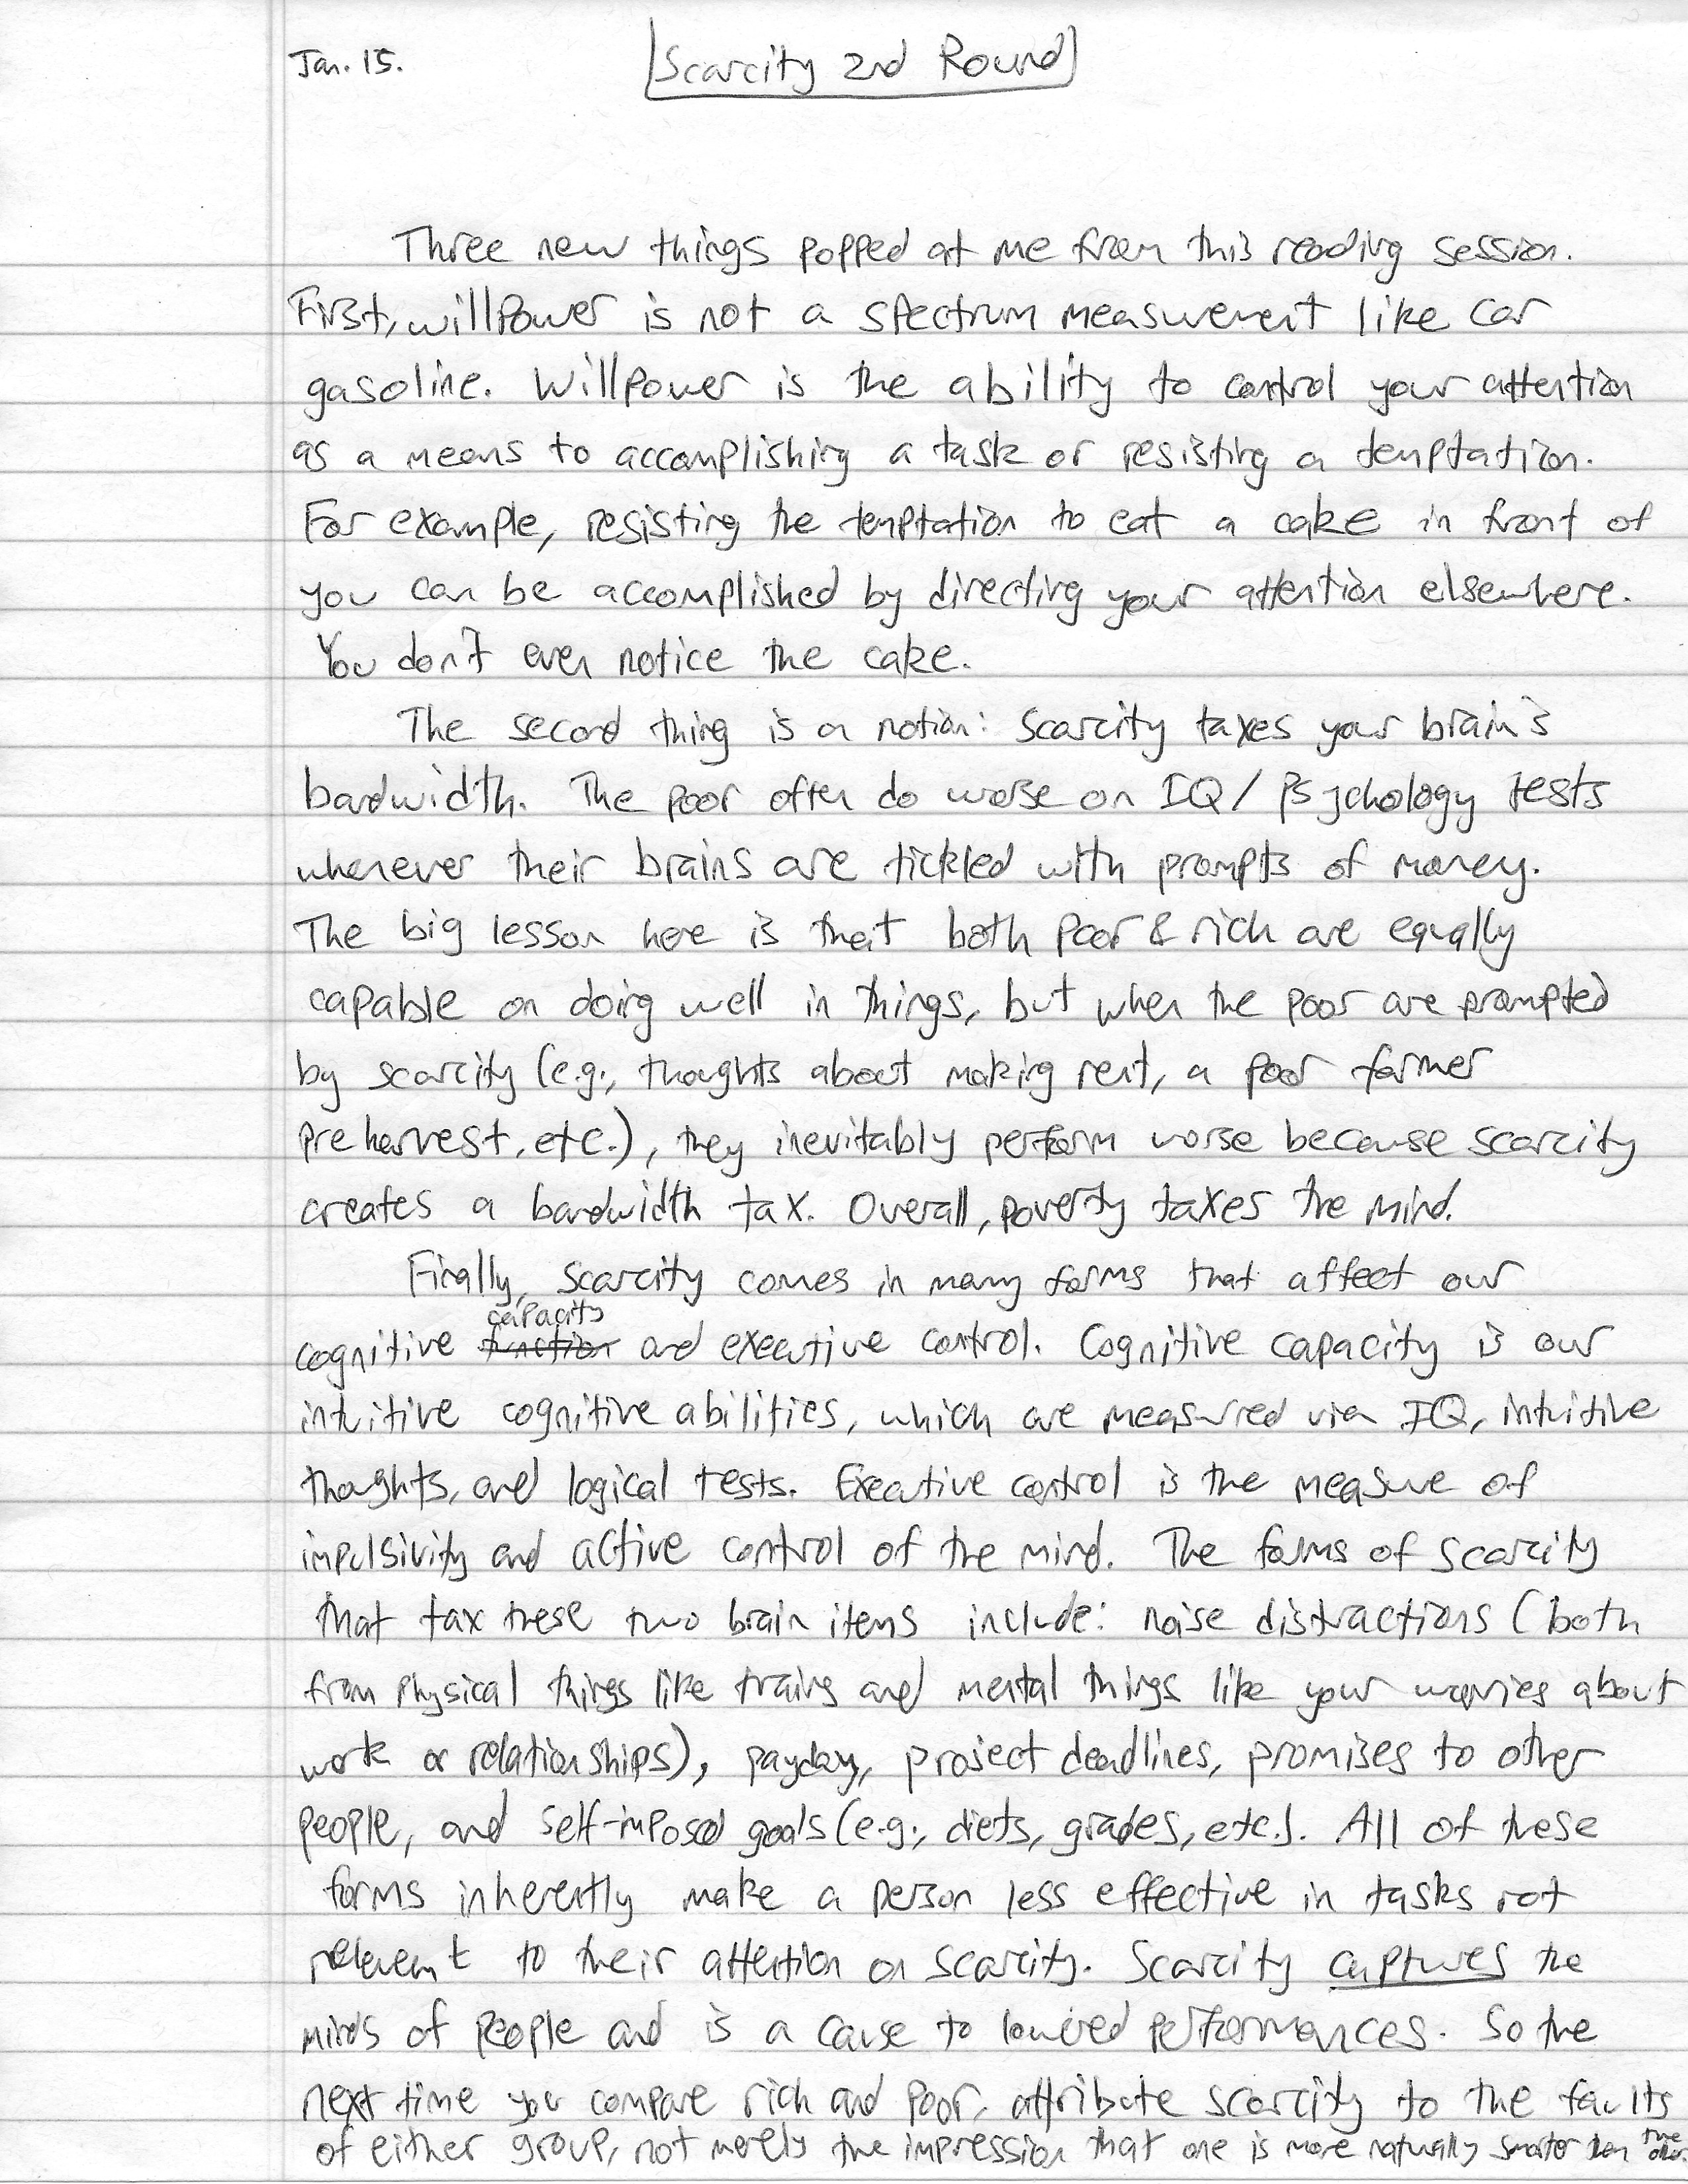 Jan. 15.
Scarcity 2nd Round
Three new things popped at me from this reading session.
First, willpower is not a spectrum measurement like car
gasoline. Willpower is the ability to control your attention
as a means to accomplishing a task or resisting a temptation.
For example, resisting the temptation to eat a cake in front of
you can be accomplished by directing your attention elsewhere.
You don't even notice the cake.
The second thing is a notion: Scarcity taxes your brain's
bandwidth. The poor often do worse on IQ/psychology tests
whenever their brains are tickled with prompts of money.
The big lesson here is that both poor & rich are equally
capable on doing well in things, but when the poor are prompted
by scarcity (e.g., thoughts about making rent, a poor farmer
preharvest, etc.), they inevitably perform worse because scarcity
creates a bandwidth tax. Overall, poverty taxes the mind.
Finally, scarcity comes in many forms that affect our
capacity
cognitive function and executive control. Cognitive capacity is our
intuitive cognitive abilities, which are measured via IQ, intuitive
thoughts, and logical tests. Executive control is the measure of
impulsivity and active control of the mind. The forms of scarcity
that tax these two brain items include: noise distractions (both
from physical things like trains and mental things like your worries about
work or relationships), payday, project deadlines, promises to other
people, and self-imposed goals (e.g., diets, grades, etc.). All of these
forms inherently make a person less effective in tasks not
relevant to their attention on scarcity. Scarcity captures the
minds of people and is a cause to lowered performances. So the
next time you compare rich and poor, attribute scarcity to the faults
of either group, not merely the impression that one is more naturally smarter than the other.